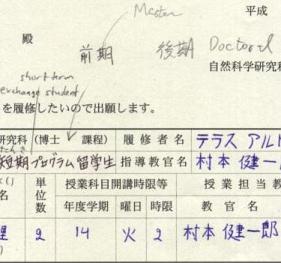 Master 平成
殿 前期 後期 Doctoral
自然科学研究科
short term
exchange student
を履修したいので出願します。
研究科 (博士 課程) 履修者名 テラス アルド
短期プログラム留学生 指導教官名 村本 健一
名 単位数 授業科目開講時限等 授業担当教
年度学期 曜日 時限 教官名
2 14 火 2 村本 健一郎